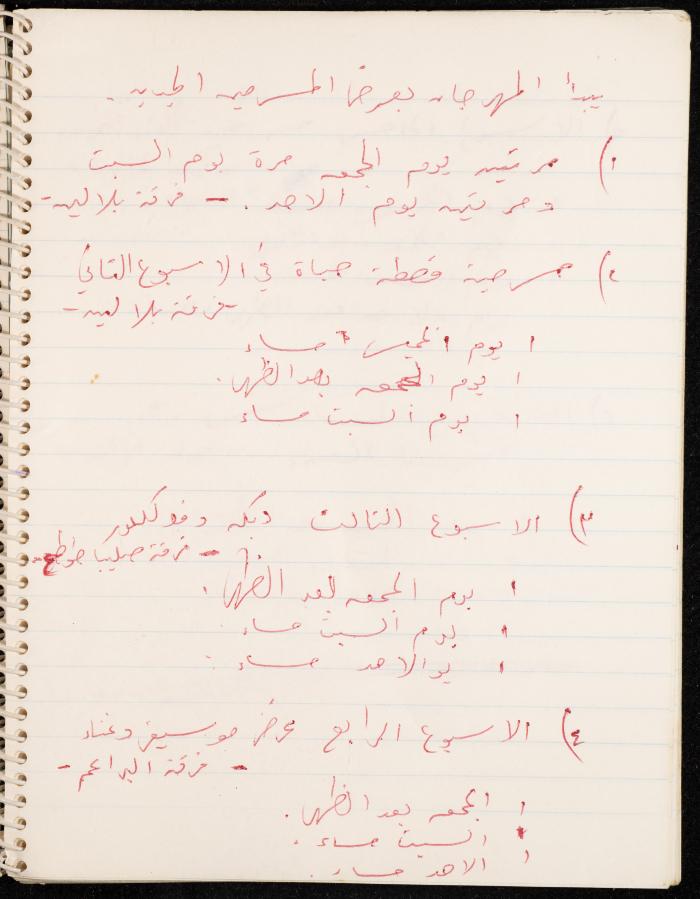 يبدأ المهرجان بعرض المسرحيه الجديده.
١) مرتين يوم الجمعه مرة يوم السبت
ومرتين يوم الاحد. - فرقة بلالين -
٢) مسرحية قطعة حياة في الاسبوع الثاني
- فرقة بلالين -
١ يوم الخميس مساء
١ يوم الجمعه بعد الظهر.
١ يوم السبت مساء
٣) الاسبوع الثالث دبكه وفولكلور
- فرقة
١ يوم الجمعه بعد الظهر.
١ يوم السبت مساء.
١ يو الاحد مساء.
٤) الاسبوع الرابع عرض موسيقى وغناء
- فرقة البراعم -
١ الجمعه بعد الظهر.
١ السبت مساء.
١ الاحد مساء.